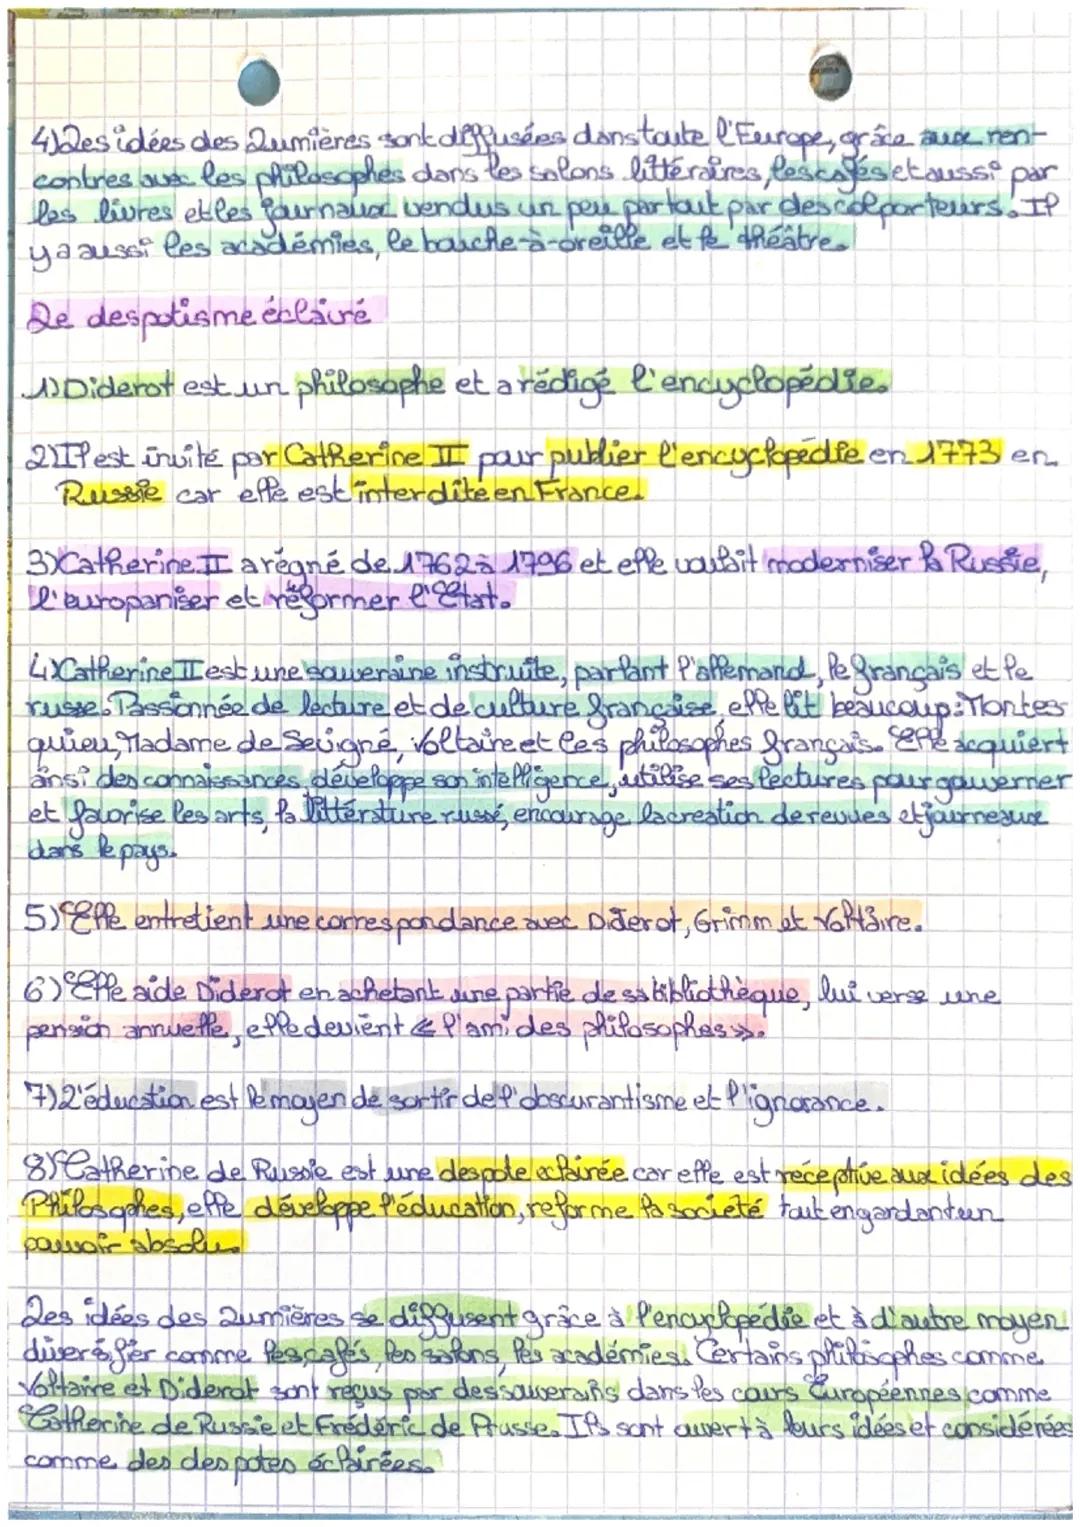 4) Les idées des Lumières sont diffusées dans toute l'Europe, grâce aux ren-
contres avec les philosophes dans les salons littéraires, les cafés et aussi par
les livres et les journaux vendus un peu partout par des colporteurs. Il
y a aussi les académies, le bouche-à-oreille et le théâtre.
Le despotisme éclairé
1) Diderot est un philosophe et a rédigé l'encyclopédie.
2) Il est invité par Catherine II pour publier l'encyclopédie en 1773 en
Russie car elle est interdite en France.
3) Catherine II a régné de 1762 à 1796 et elle voulait moderniser la Russie,
l'europaniser et réformer l'État.
4) Catherine II est une souveraine instruite, parlant l'allemand, le français et le
russe. Passionnée de lecture et de culture française, elle lit beaucoup : Montes
quieu, Madame de Sévigné, Voltaire et les philosophes français. Elle acquiert
ainsi des connaissances, développe son intelligence, utilise ses lectures pour gouverner
et favorise les arts, la littérature russe, encourage la création de revues et journeaux
dans le pays.
5) Elle entretient une correspondance avec Diderot, Grimm et Voltaire.
6) Elle aide Diderot en achetant une partie de sa bibliothèque, lui verse une
pension annuelle, elle devient « l'ami des philosophes ».
7) L'éducation est le moyen de sortir de l'obscurantisme et l'ignorance.
8) Catherine de Russie est une despote éclairée car elle est réceptive aux idées des
Philosophes, elle développe l'éducation, reforme la société tout en gardant un
pouvoir absolu.
Les idées des Lumières se diffusent grâce à l'encyclopédie et à d'autre moyen
diversifier comme les cafés, les salons, les académies. Certains philosophes comme
Voltaire et Diderot sont reçus par des souverains dans les cours Européennes comme
Catherine de Russie et Frédéric de Prusse. Ils sont ouvert à leurs idées et considérées
comme des despotes éclairées.